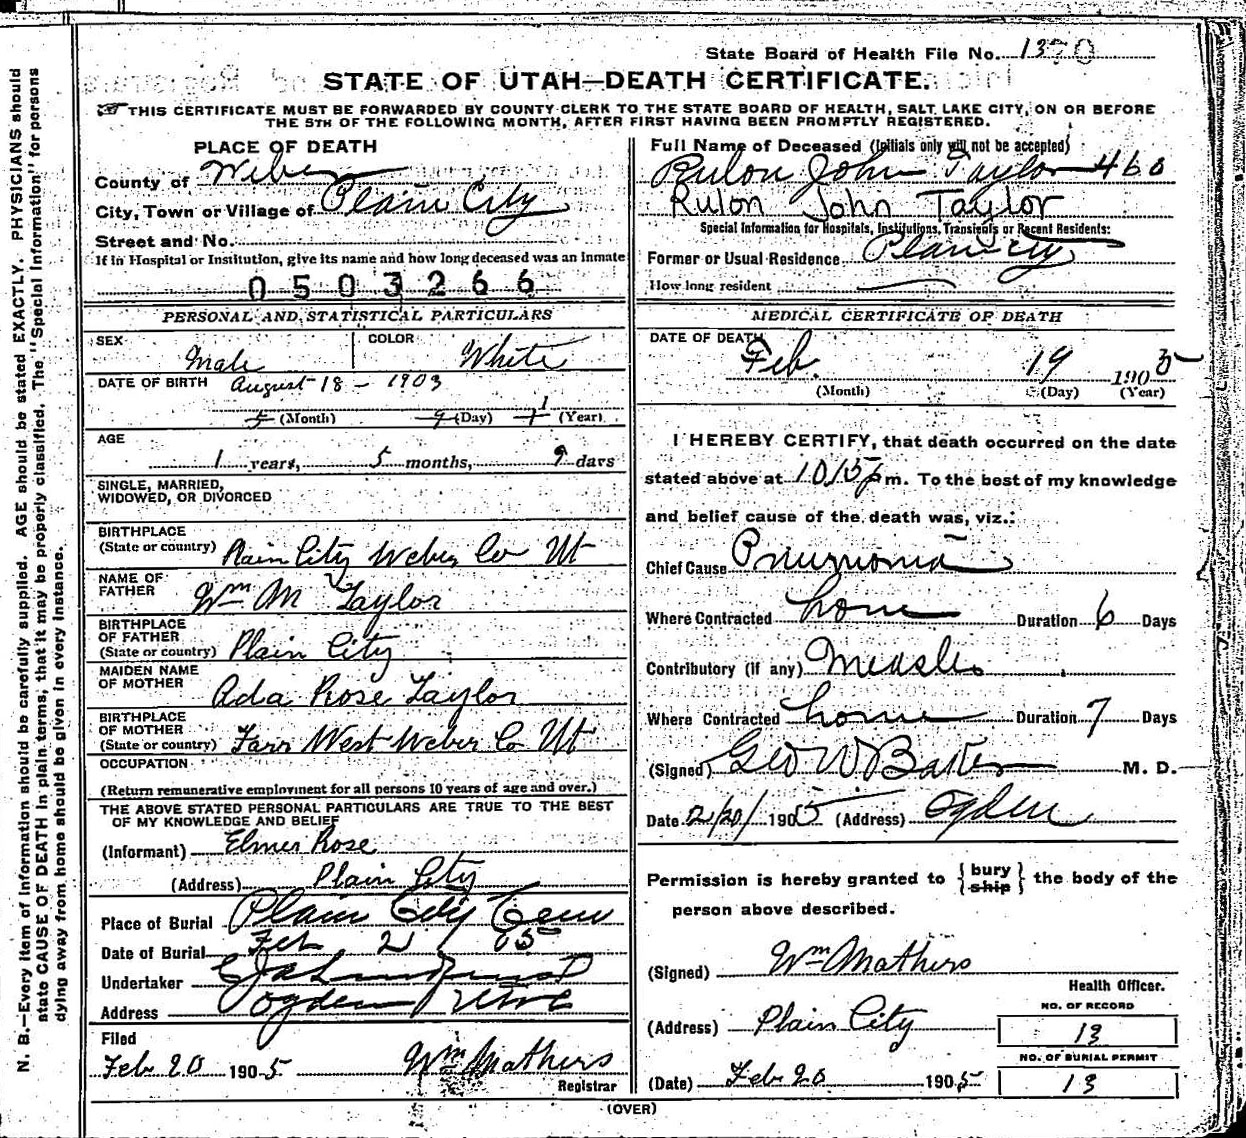 State Board of Health File No. 1370
STATE OF UTAH—DEATH CERTIFICATE.
THIS CERTIFICATE MUST BE FORWARDED BY COUNTY CLERK TO THE STATE BOARD OF HEALTH, SALT LAKE CITY, ON OR BEFORE
THE 5TH OF THE FOLLOWING MONTH, AFTER FIRST HAVING BEEN PROMPTLY REGISTERED.
N. B.—Every item of information should be carefully supplied. AGE should be stated EXACTLY. PHYSICIANS should
state CAUSE OF DEATH in plain terms, that it may be properly classified. The "Special Information" for persons
dying away from home should be given in every instance.
PLACE OF DEATH
County of Weber
City, Town or Village of Plain City
Street and No.
If in Hospital or Institution, give its name and how long deceased was an inmate
0503266
PERSONAL AND STATISTICAL PARTICULARS
SEX Male COLOR White
DATE OF BIRTH August 18 - 1903
5 (Month) 9 (Day) 1 (Year)
AGE
1 years, 5 months, 9 days
SINGLE, MARRIED,
WIDOWED, OR DIVORCED
BIRTHPLACE
(State or country) Plain City Weber Co Ut
NAME OF
FATHER Wm M Taylor
BIRTHPLACE
OF FATHER
(State or country) Plain City
MAIDEN NAME
OF MOTHER Ada Rose Taylor
BIRTHPLACE
OF MOTHER
(State or country) Farr West Weber Co Ut
OCCUPATION
(Return remunerative employment for all persons 10 years of age and over.)
THE ABOVE STATED PERSONAL PARTICULARS ARE TRUE TO THE BEST
OF MY KNOWLEDGE AND BELIEF
(Informant) Elmer Rose
(Address) Plain City
Place of Burial Plain City Cem
Date of Burial Feb 21 05
Undertaker
Address Ogden
Filed
Feb 20 1905 Wm Mathers
Registrar
Full Name of Deceased (Initials only will not be accepted)
Rulon John Taylor 460
Rulon John Taylor
Special Information for Hospitals, Institutions, Transients or Recent Residents:
Former or Usual Residence Plain City
How long resident
MEDICAL CERTIFICATE OF DEATH
DATE OF DEATH
Feb. 19 1905
(Month) (Day) (Year)
I HEREBY CERTIFY, that death occurred on the date
stated above at 1015 p m. To the best of my knowledge
and belief cause of the death was, viz.:
Chief Cause Pneumonia
Where Contracted home Duration 6 Days
Contributory (if any) Measles
Where Contracted home Duration 7 Days
(Signed) Geo W Baker M. D.
Date 2/20/1905 (Address) Ogden
Permission is hereby granted to { bury ship } the body of the
person above described.
(Signed) Wm Mathers
Health Officer.
(Address) Plain City
NO. OF RECORD
13
NO. OF BURIAL PERMIT
13
(Date) Feb 20 1905
(OVER)